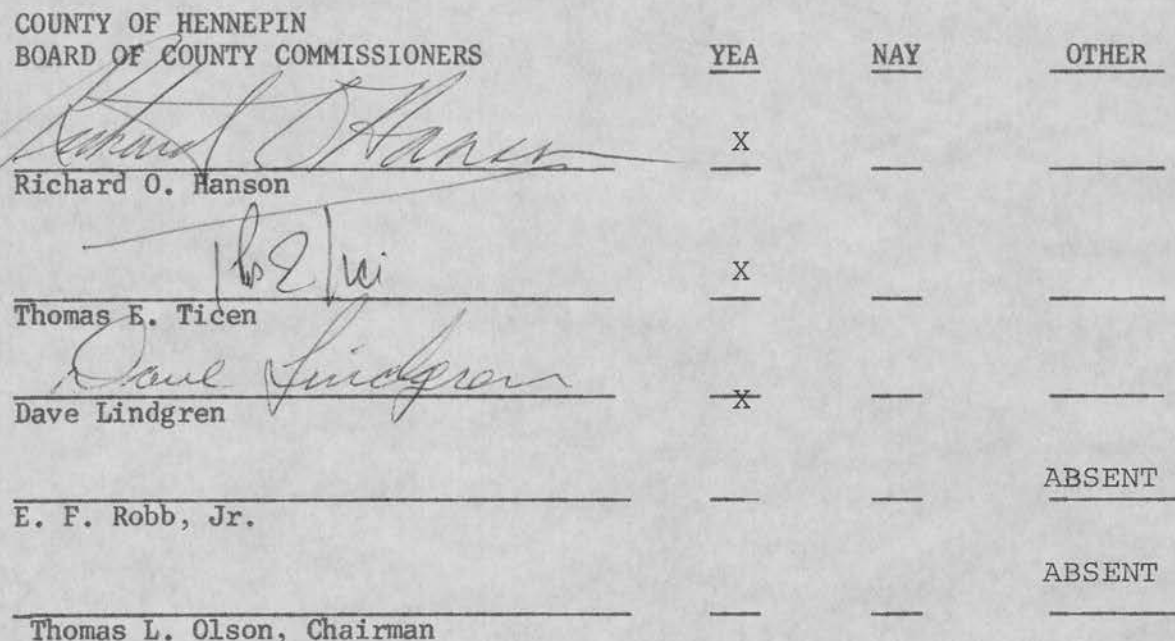 COUNTY OF HENNEPIN
BOARD OF COUNTY COMMISSIONERS YEA NAY OTHER
Richard O Hanson X
Richard O. Hanson
X
Thomas E. Ticen
Dave Lindgren X
Dave Lindgren
ABSENT
E. F. Robb, Jr.
ABSENT
Thomas L. Olson, Chairman